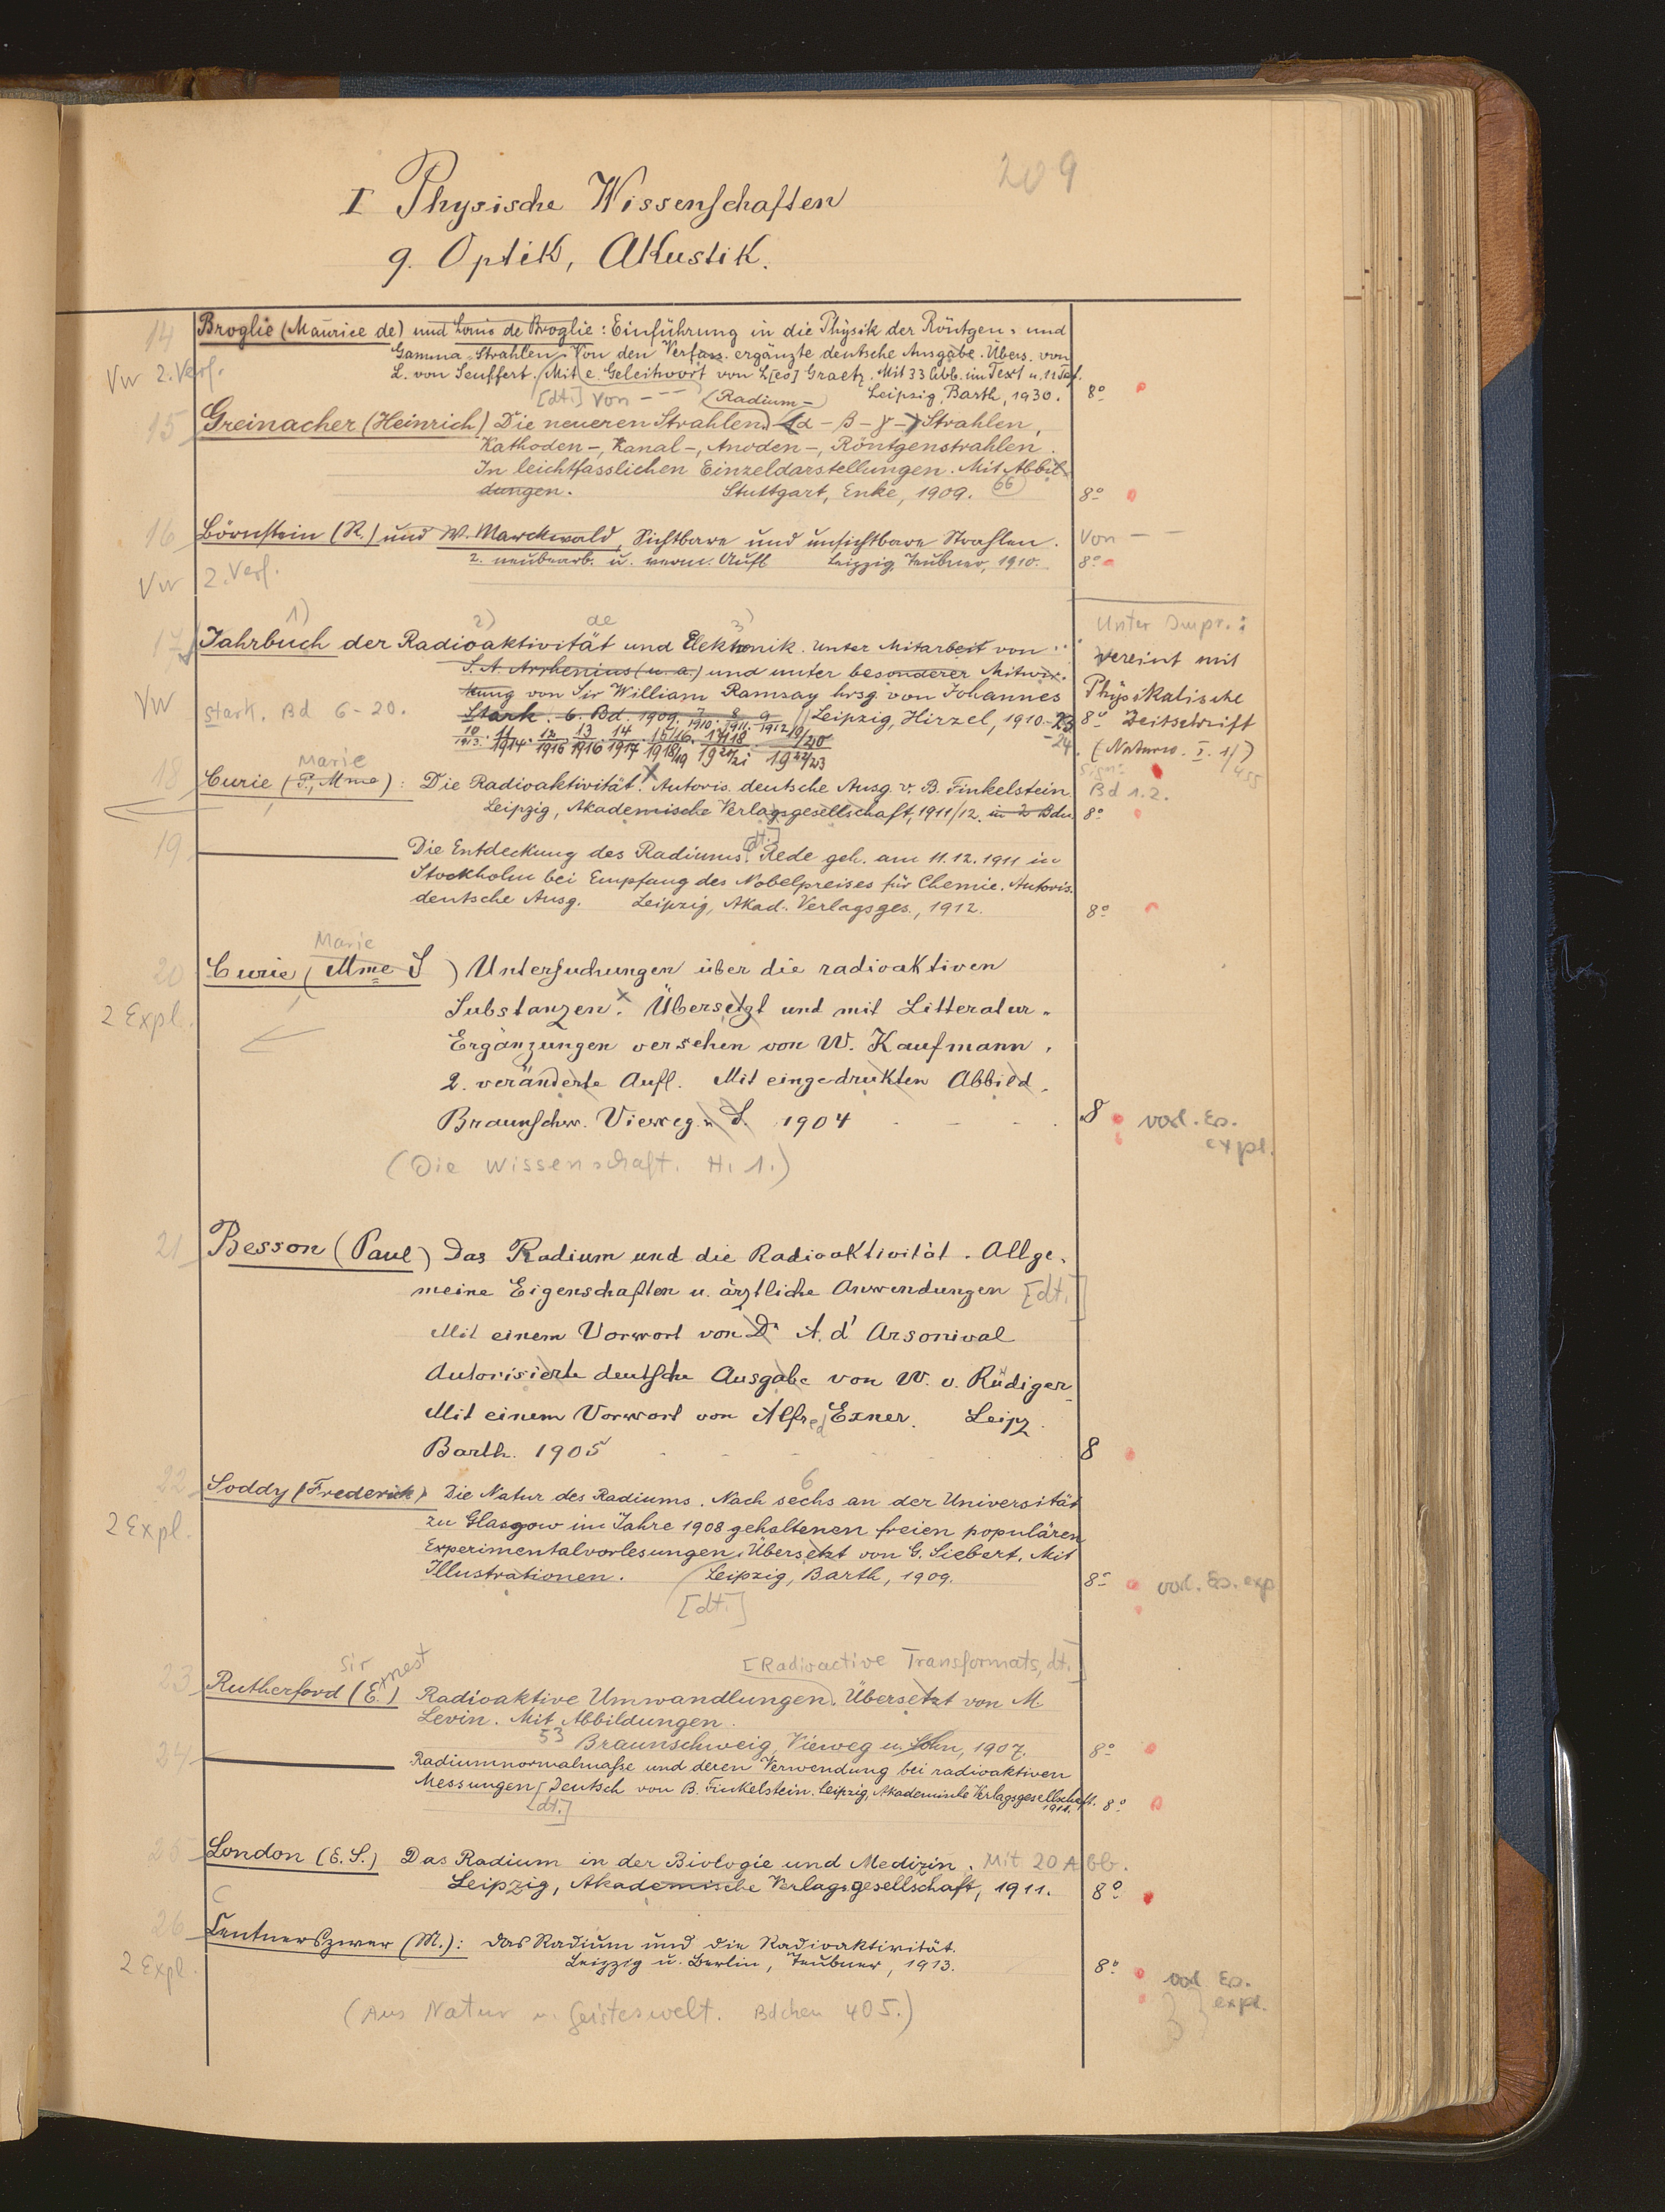 209
I Physische Wissenschaften
9. Optik, Akustik.
14 Broglie (Maurice de) und Louis de Broglie: Einführung in die Physik der Röntgen- und
Vw 2. Verf. Gamma-Strahlen. Von den Verfass. ergänzte deutsche Ausgabe. Übers. von
L. von Seuffert. Mit e. Geleitwort von L[eo] Graetz. Mit 33 Abb. im Text u. 11 Taf.
[dt.] Von - - - Leipzig, Barth, 1930. 8°
(Radium-)
15 Greinacher (Heinrich) Die neueren Strahlen. (α - β - γ -) Strahlen,
Kathoden-, Kanal-, Anoden-, Röntgenstrahlen.
In leichtfasslichen Einzeldarstellungen. Mit Abbil-
dungen. Stuttgart, Enke, 1909. 66 8°
16 Börnstein (R.) und W. Marckwald, Sichtbare und unsichtbare Strahlen. Von - -
2. neubearb. u. verm. Aufl. Leipzig, Teubner, 1910. 8°
Vw 2. Verf.
1) 2) de 3) Unter Impr.:
17 Jahrbuch der Radioaktivität und Elektronik. Unter Mitarbeit von
S. A. Arrhenius (u. a.) und unter besonderer Mitwir- vereint mit
kung von Sir William Ramsay hrsg. von Johannes Physikalische
Vw Stark. Bd 6-20. Stark. 6. Bd. 1909. 7/1910. 8/1911. 9/1912 Leipzig, Hirzel, 1910-23 8° Zeitschrift
10/1913. 11/1914. 12/1915 13/1916 14/1917 15/16. 1918/19 17/18 1920/21 19/20 1922/23 -24. (Naturw. I. 1/455)
Marie
18 Curie (P., Mme): Die Radioaktivität. Autoris. deutsche Ausg. v. B. Finkelstein Bd 1.2.
Leipzig, Akademische Verlagsgesellschaft, 1911/12. in 2 Bdn. 8°
[dt.]
19 Die Entdeckung des Radiums. Rede geh. am 11.12.1911 in
Stockholm bei Empfang des Nobelpreises für Chemie. Autoris.
deutsche Ausg. Leipzig, Akad. Verlagsges., 1912. 8°
Marie
20 Curie (Mme S ) Untersuchungen über die radioaktiven
2 Expl. Substanzen. Übersetzt und mit Litteratur-
Ergänzungen versehen von W. Kaufmann.
2. veränderte Aufl. Mit eingedrukten Abbild.
Braunschw. Vieweg u. S. 1904 8
expl.
(Die Wissenschaft. H. 1.)
21 Besson (Paul) Das Radium und die Radioaktivität. Allge-
meine Eigenschaften u. ärztliche Anwendungen [dt.]
Mit einem Vorwort von Dr A. d' Arsonival
Autorisierte deutsche Ausgabe von W. v. Rüdiger
Mit einem Vorwort von Alfred Exner. Leipz.
Barth. 1905 8
6
22 Soddy (Frederick) Die Natur des Radiums. Nach sechs an der Universität
2 Expl. zu Glasgow im Jahre 1908 gehaltenen freien populären
Experimentalvorlesungen. Übersetzt von G. Siebert. Mit
Illustrationen. Leipzig, Barth, 1909. 8°
[dt.]
Sir Ernest [Radioactive Transformats, dt.]
23 Rutherford (E.) Radioaktive Umwandlungen. Übersetzt von M.
Levin. Mit Abbildungen.
53 Braunschweig, Vieweg u. Sohn, 1907. 8°
24 Radiumnormalmaße und deren Verwendung bei radioaktiven
Messungen. Deutsch von B. Finkelstein. Leipzig, Akademische Verlagsgesellschaft. 1911. 8°
[dt.]
25 London (E. S.) Das Radium in der Biologie und Medizin. Mit 20 Abb.
Leipzig, Akademische Verlagsgesellschaft, 1911. 8°
C
26 Centnerszwer (M.): Das Radium und die Radioaktivität.
2 Expl. Leipzig u. Berlin, Teubner, 1913. 8°
expl.
(Aus Natur u. Geisteswelt. Bdchen 405.)